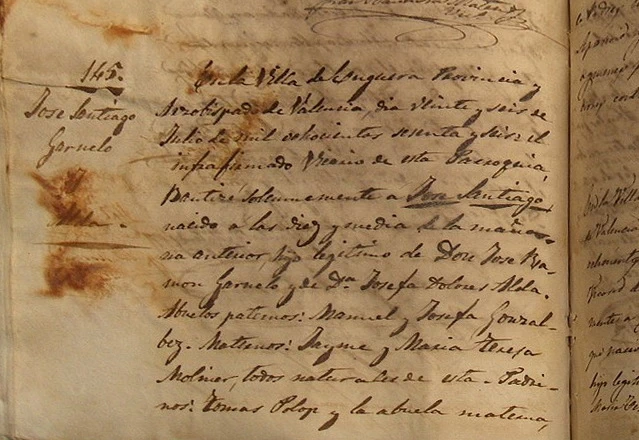 145.
Jose Santiago
Garnelo
y
Alda.
En la Villa de Enguera Provincia y
Arzobispado de Valencia, dia veinte y seis de
Julio de mil ochocientos sesenta y seis: el
infrafirmado Vicario de esta Parroquia,
Bauticé solemnemente a Jose Santiago,
nacido a las diez y media de la maña-
na anterior, hijo legitimo de Don Jose Ra-
mon Garnelo y de Dª Josefa Dolores Alda.
Abuelos paternos: Manuel y Josefa Gonzal-
bez. Maternos: Jayme y Maria Teresa
Moliner, todos naturales de esta. Padri-
nos: Tomas Polop y la abuela materna,